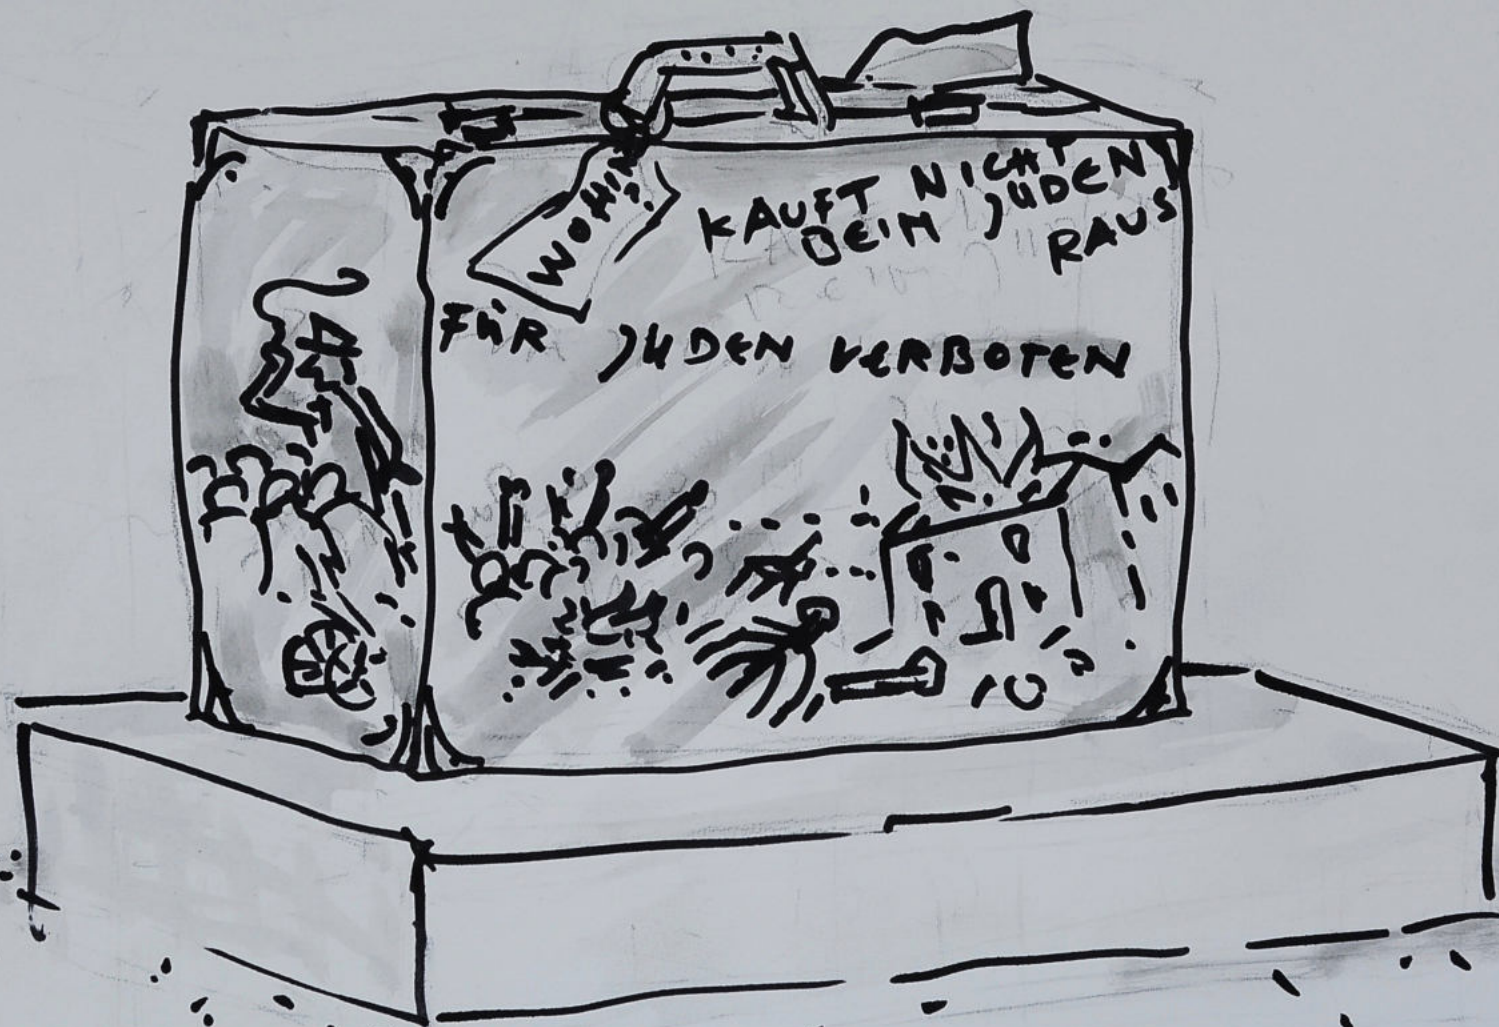 WOHIN?
KAUFT NICHT
BEIM JUDEN
RAUS
FÜR JUDEN VERBOTEN